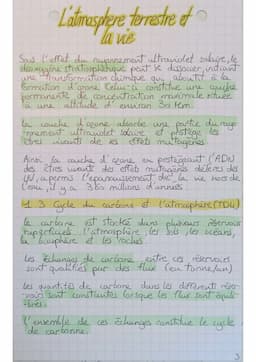 L'atmosphère terrestre et
la vie
Sous l'effet du rayonnement ultraviolet solaire, le
dioxygène stratosphérique peut se dissocier, initiant
une transformation chimique qui aboutit à la
formation d'ozone. Celui-ci constitue une couche
permanente de concentration maximale située
à une altitude d'environ 30 Km.
La couche d'ozone absorbe une partie du rayo-
nnement ultraviolet solaire et protège les
êtres vivants de ses effets mutagènes
Ainsi la couche d'ozone en protégeant l'ADN
des êtres vivants des effets mutagènes délétères des
UV, a permis l'épanouissement de la vie hors de
l'eau, il y a millions d'années.
1.3 Cycle du carbone et l'atmosphère
Le carbone est stocké dans plusieurs réservoirs
superficiels: l'atmosphère, les sols, les océans,
la biosphère et les roches.
Les échanges de carbone entre ces réservoirs
sont quantifiés par des flux (en tonne/an)
Les quantités de carbone dans les différents réser-
voirs sont constantes lorsque les flux sont équili-
brés.
L'ensemble de ces échanges constitue le cycle
de carbone.
3